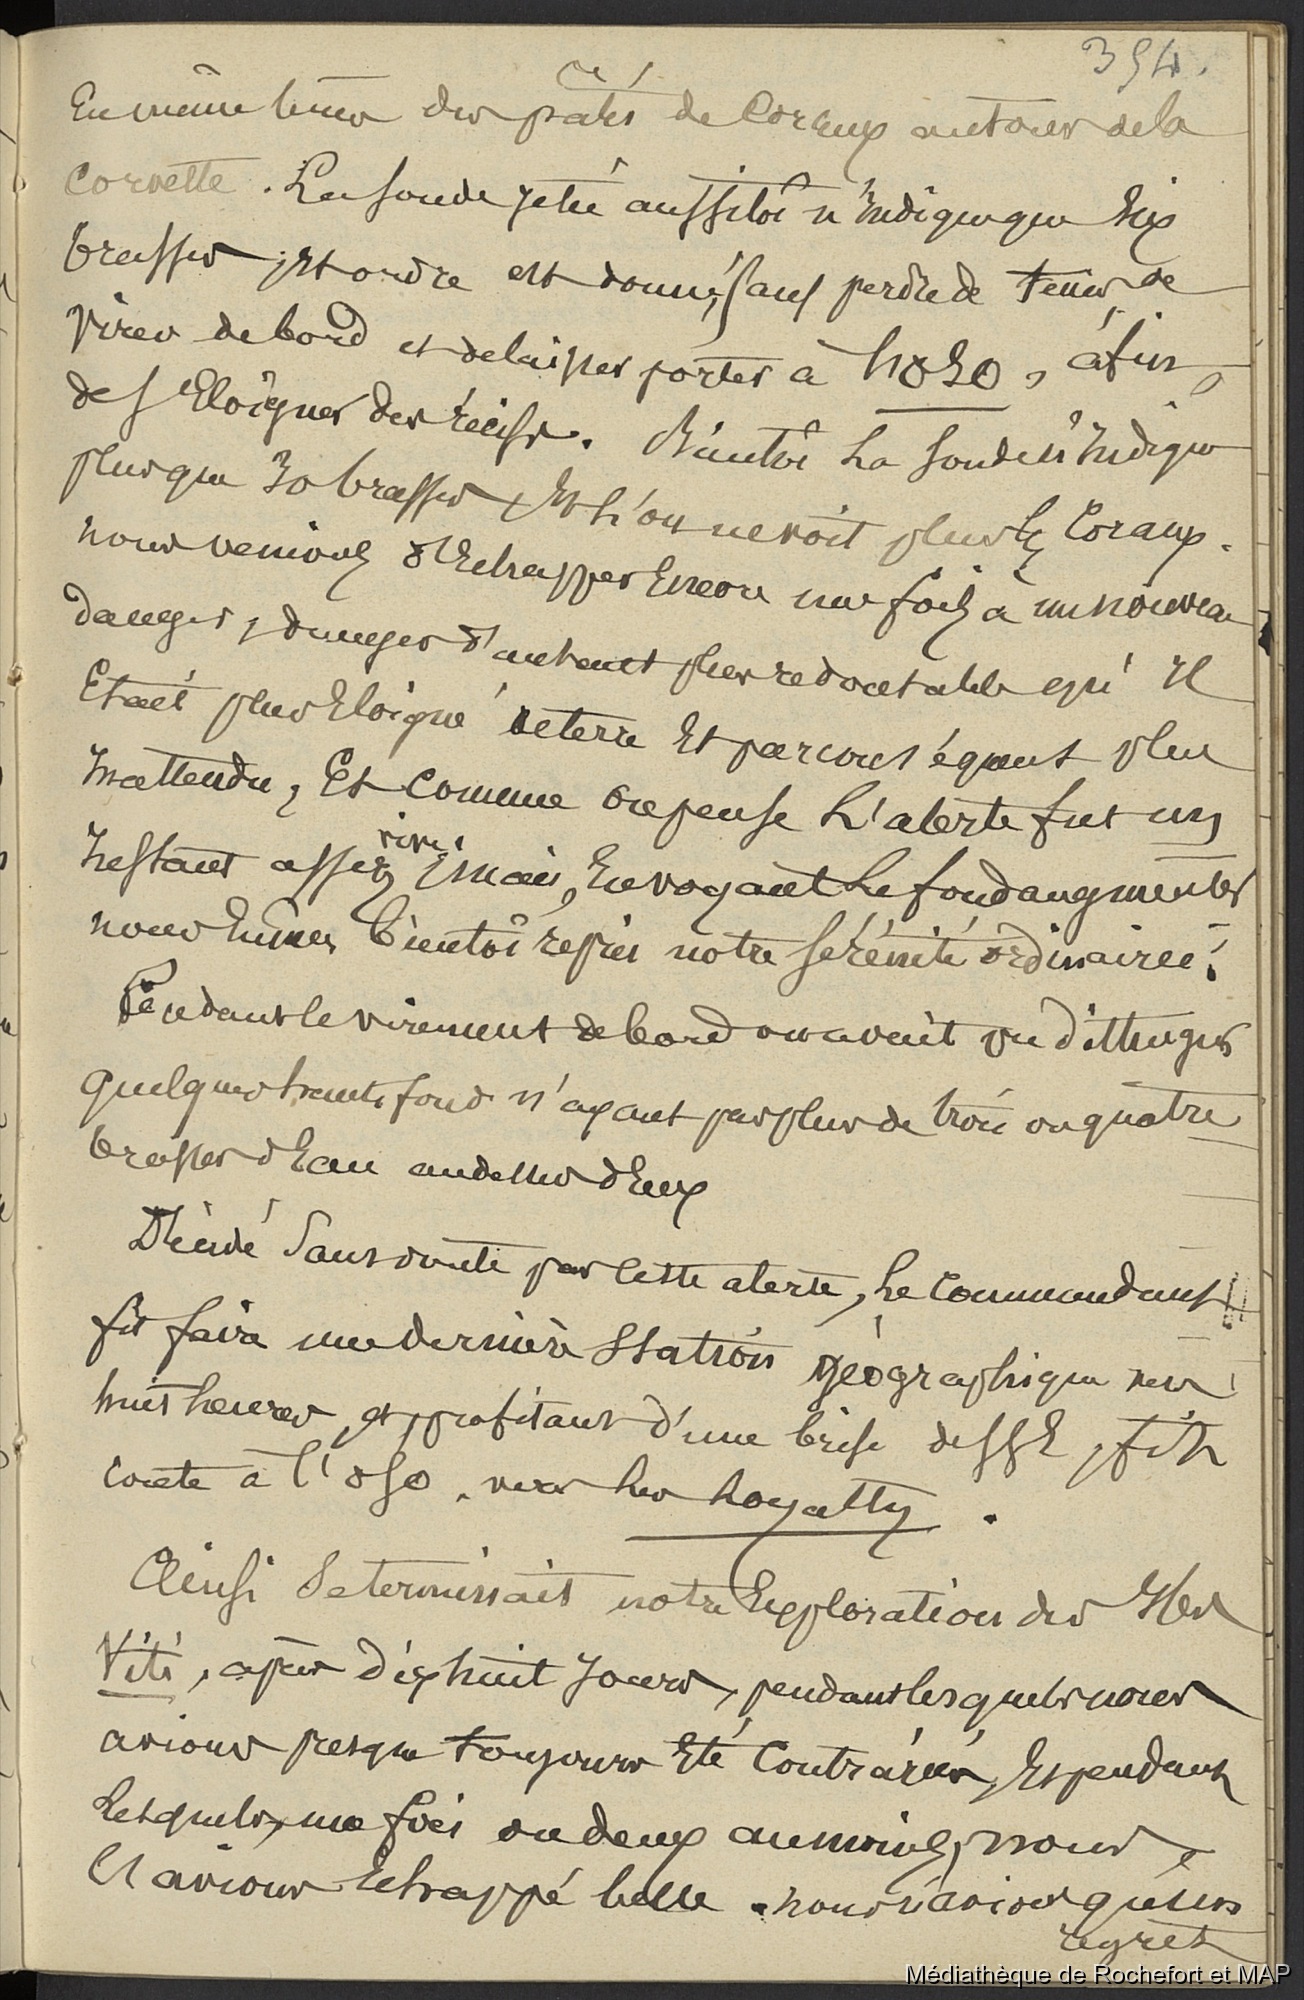 394.
En même tems des patés de Coraux autour de la
corvette. La sonde jetée aussitôt n'Indique que six
brasses, Et ordre est donné, sans perdre de tems, de
virer de bord et de laisser porter à l'O50, afin
de s'Eloigner des récifs. Bientôt La sonde n'Indique
plus que 30 brasses, Et L'on ne voit plus de Coraux.
nous venions d'Echapper Encore une fois à un nouveau
danger, danger d'autant plus redoutable qu'Il
Etait plus Eloigné de terre Et par conséquent plus
Inattendu, Et comme on pense L'alerte fut un
Instant assez vive; mais, En voyant Le fond augmenter
nous Eumes bientôt repris notre sérénité ordinaire.
Pendant le virement de bord on avait vu distinguer
quelques hauts fond n'ayant pas plus de trois ou quatre
brasses d'Eau au dessus d'Eux
Décidé sans doute par cette alerte, Le Commandant
fit faire une dernière station géographique vers
huit heures, et profitant d'une brise de SSE, fit
route à l'OSO, vers Les Loyalty.
Ainsi se terminait notre Exploration des Iles
Viti, après dix huit jours, pendant lesquels nous
avions presque toujours Eté Contrariés, Et pendant
Lesquels, une fois ou deux au moins, nous
L'avions Echappé belle. nous n'avions qu'un
regret
Médiathèque de Rochefort et MAP